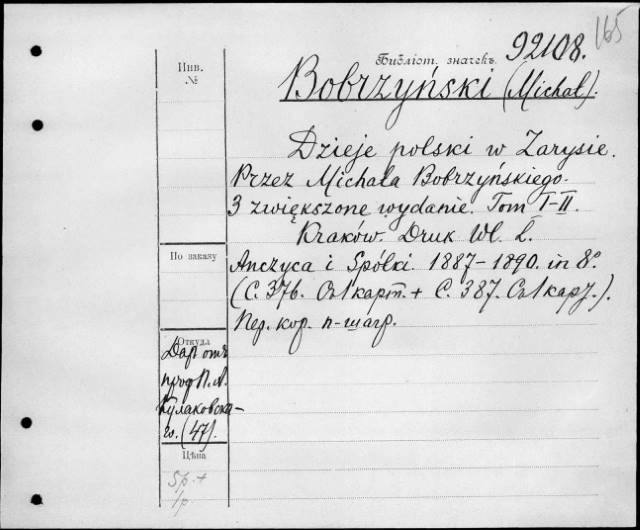 165
Библіот. значекъ 92108.
Инв.
№
Bobrzyński (Michał).
Dzieje polski w Zarysie.
Przez Michała Bobrzyńskiego.
3 zwiększone wydanie. Tom I-II.
Kraków. Druk Wł. L.
По заказу
Anczyca i Spółki. 1887-1890. in 8º
(С. 376. Съ 1 карт. + С. 387. Съ 1 карт.).
Пер. кор. п-шагр.
Откуда
Даръ отъ
проф. П. А.
Кулаковска-
го. (47).
Цѣна
5р. +
1р.